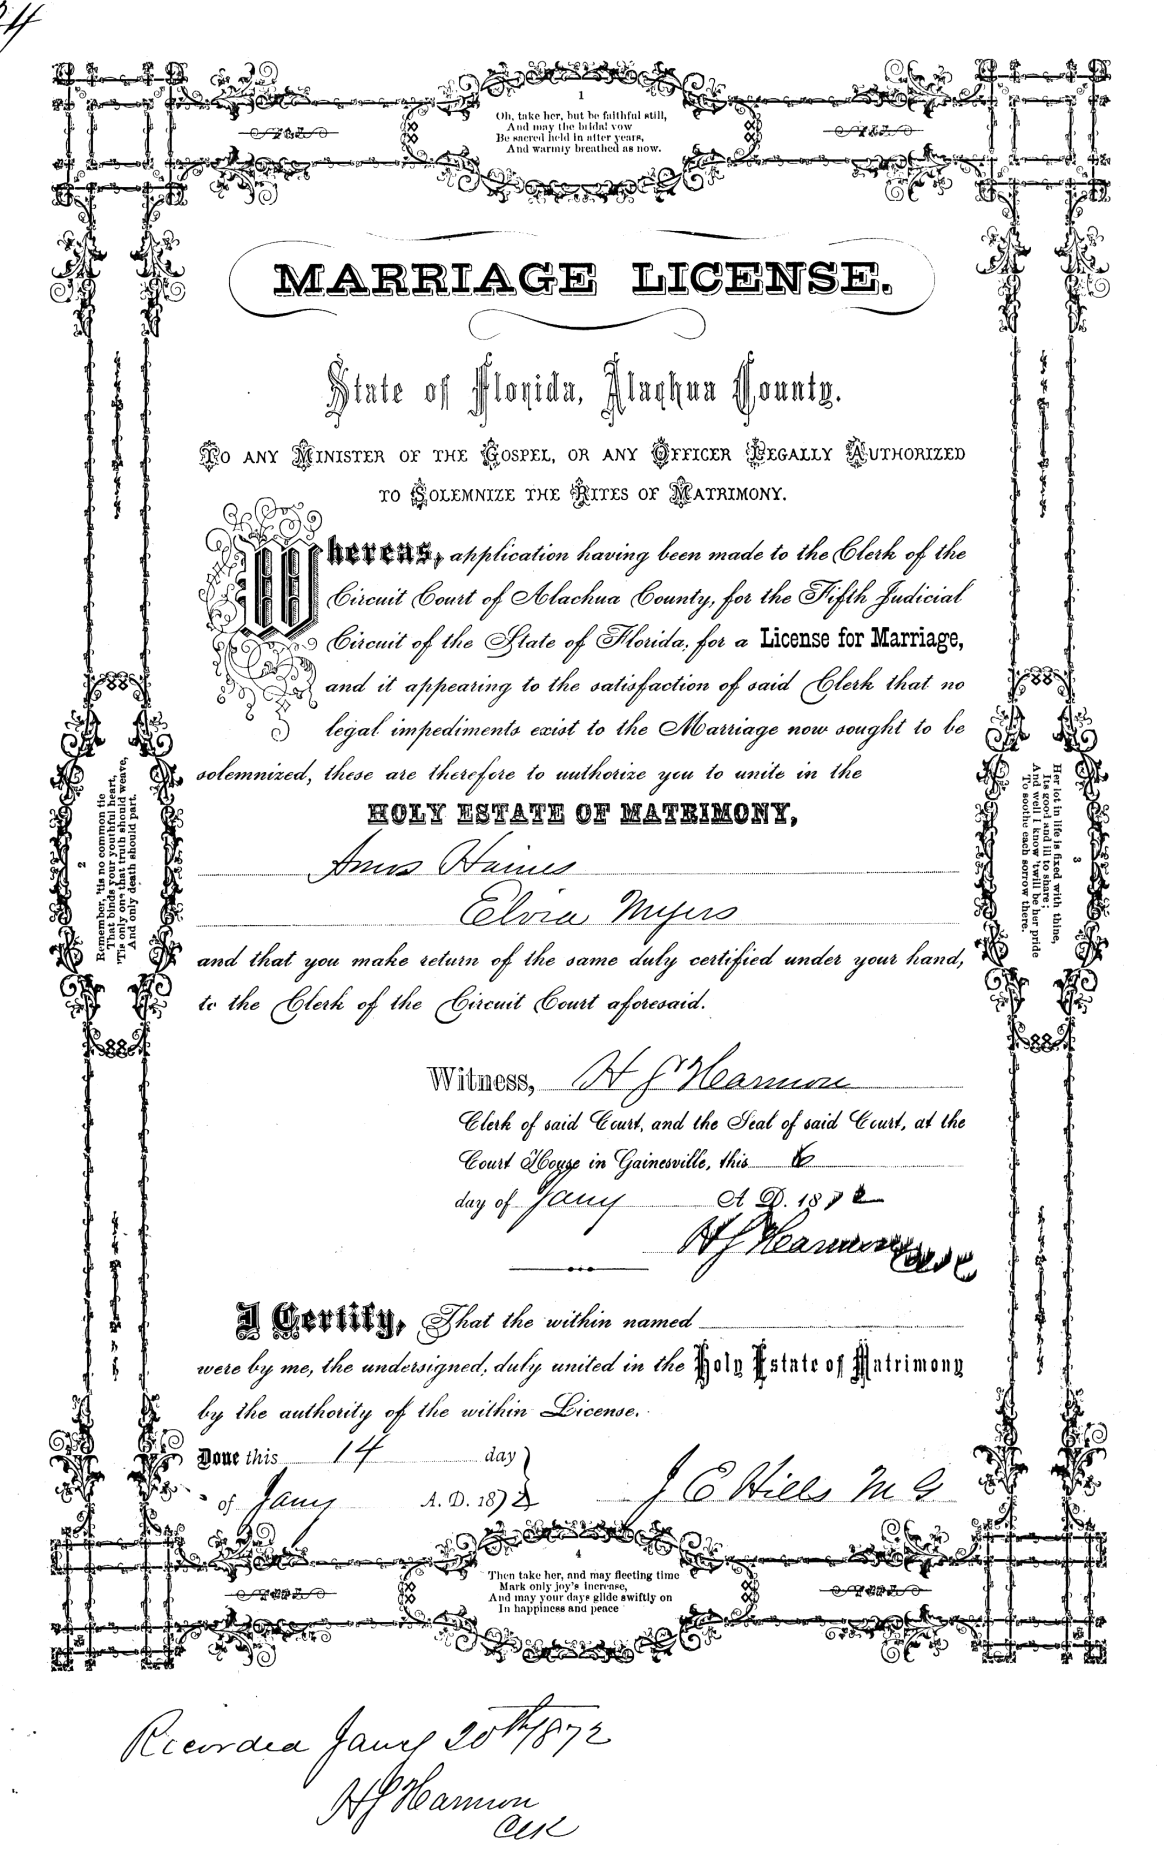 24
1
Oh, take her, but be faithful still,
And may the bridal vow
Be sacred held in after years,
And warmly breathed as now.
MARRIAGE LICENSE.
State of Florida, Alachua County.
TO ANY MINISTER OF THE GOSPEL, OR ANY OFFICER LEGALLY AUTHORIZED
TO SOLEMNIZE THE RITES OF MATRIMONY.
Whereas, application having been made to the Clerk of the
Circuit Court of Alachua County, for the Fifth Judicial
Circuit of the State of Florida, for a License for Marriage,
and it appearing to the satisfaction of said Clerk that no
legal impediments exist to the Marriage now sought to be
solemnized, these are therefore to authorize you to unite in the
HOLY ESTATE OF MATRIMONY,
Amos Haines
Elvia Myers
and that you make return of the same duly certified under your hand,
to the Clerk of the Circuit Court aforesaid.
Witness, H J Harmon
Clerk of said Court, and the Seal of said Court, at the
Court House in Gainesville, this 6
day of Jany A. D. 1872
H J Harmon Clerk
I Certify, That the within named
were by me, the undersigned, duly united in the Holy Estate of Matrimony
by the authority of the within License.
Done this 14 day
of Jany A. D. 1872 J E Hills M G
2
Remember, 'tis no common tie
That binds your youthful heart,
'Tis only one that truth should weave,
And only death should part.
3
Her lot in life is fixed with thine,
Its good and ill to share;
And well I know 'twill be her pride
To soothe each sorrow there.
4
Then take her, and may fleeting time
Mark only joy's increase,
And may your days glide swiftly on
In happiness and peace
Recorded Jany 20th 1872
H J Harmon
Clk